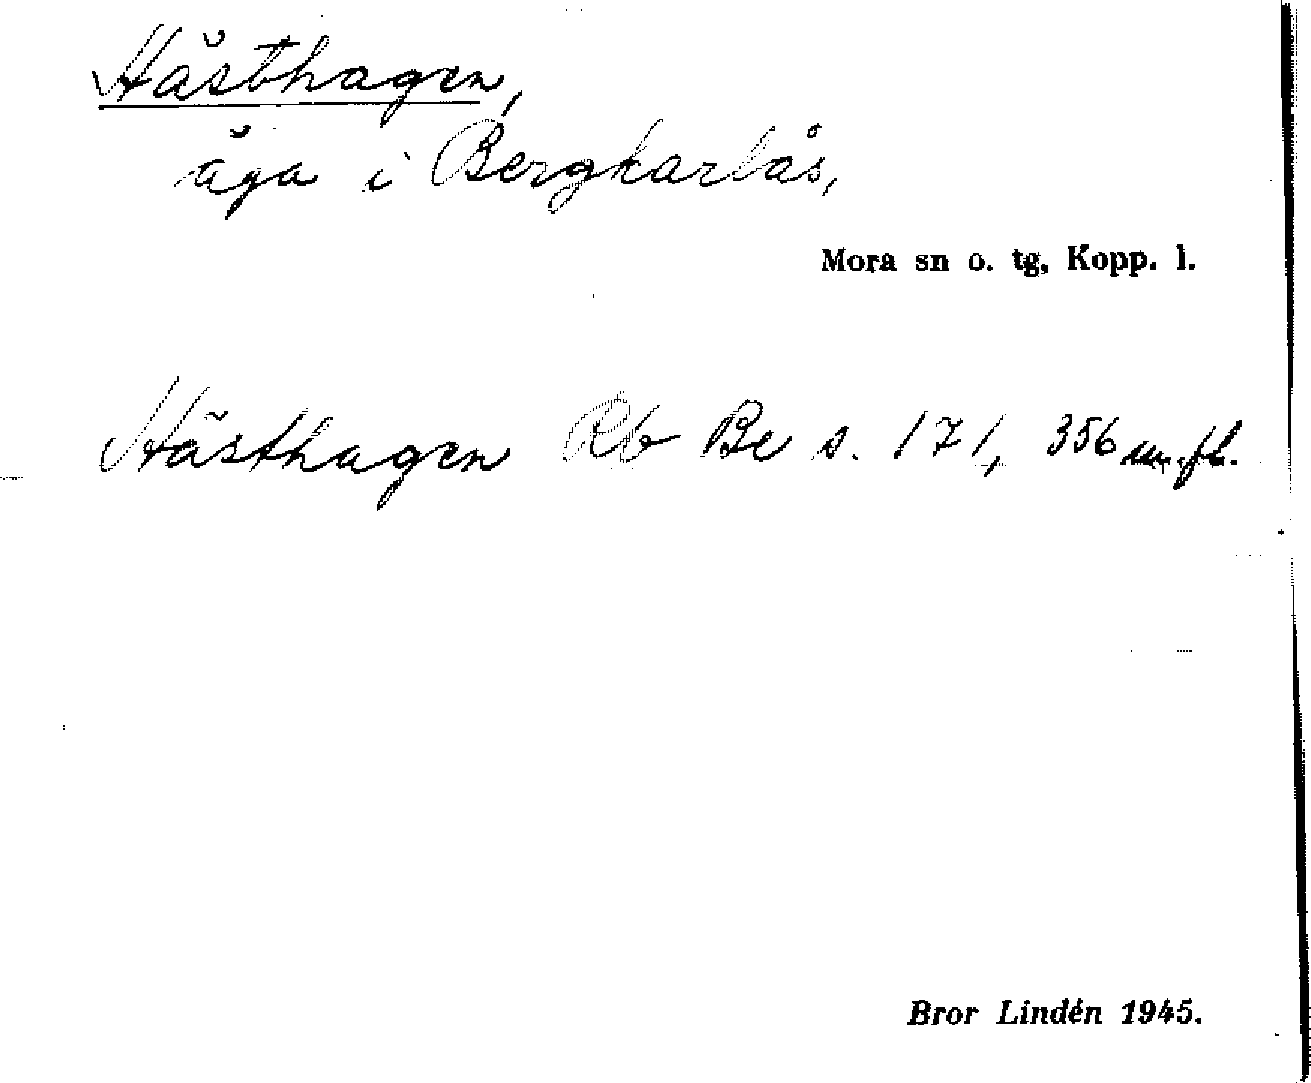 Hästhagen,
äga i Bergkarlås,
Mora sn o. tg, Kopp. l.
Hästhagen Rb Be s. 171, 356 m.fl.
Bror Lindén 1945.